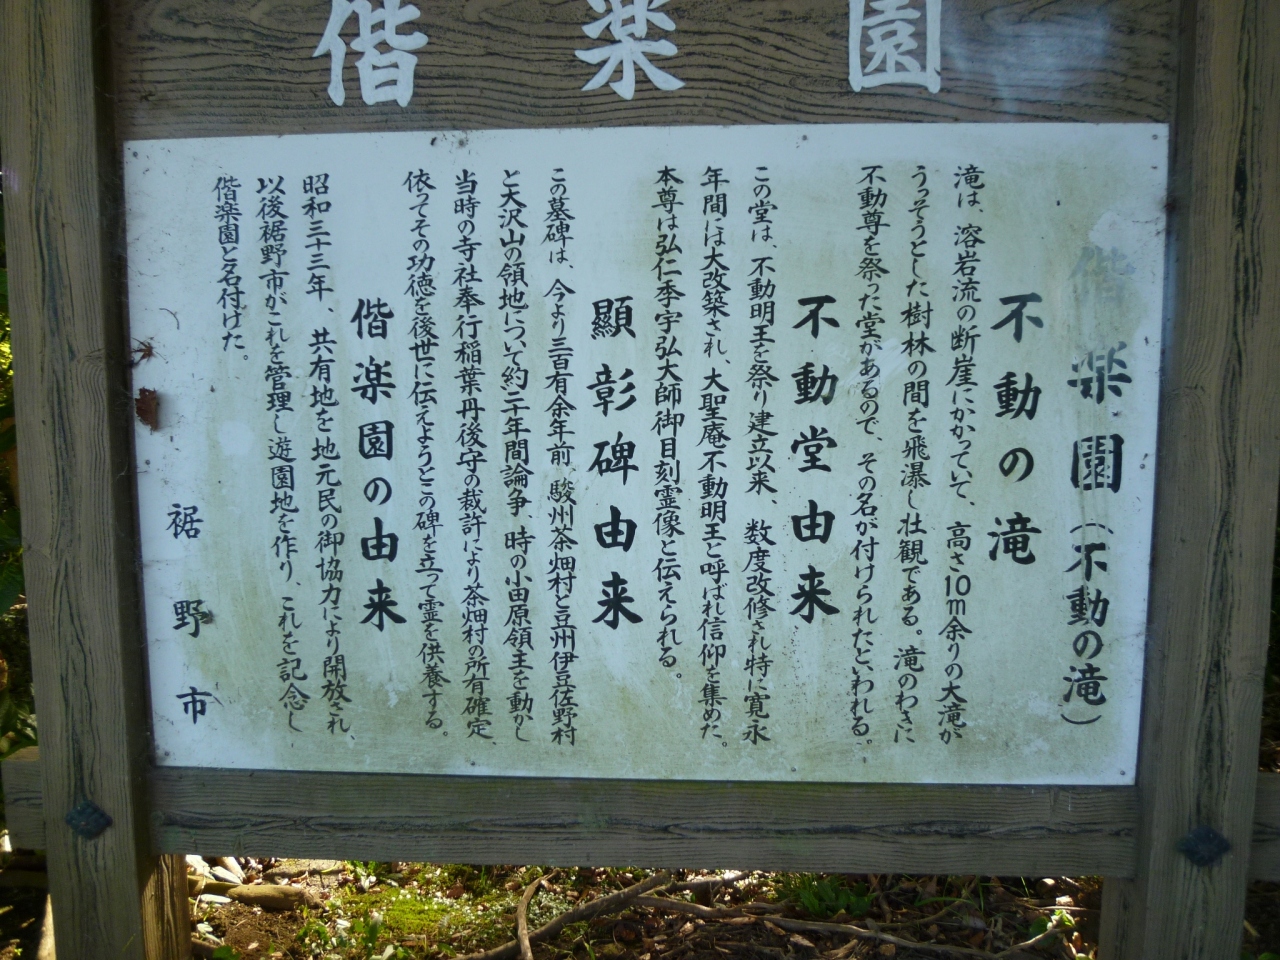 偕楽園
偕楽園(不動の滝)
不動の滝
滝は、溶岩流の断崖にかかっていて、高さ10m余りの大滝が
うっそうとした樹林の間を飛瀑し壮観である。滝のわきに
不動尊を祭った堂があるので、その名が付けられたといわれる。
不動堂由来
この堂は、不動明王を祭り建立以来、数度改修され特に寛永
年間には大改築され、大聖庵不動明王と呼ばれ信仰を集めた。
本尊は弘仁季宇弘大師御目刻霊像と伝えられる。
顕彰碑由来
この墓碑は、今より三百有余年前、駿州茶畑村と豆州伊豆佐野村
と大沢山の領地について約二十年間論争、時の小田原領主を動かし
当時の寺社奉行稲葉丹後守の裁許により茶畑村の所有確定、
依ってその功徳を後世に伝えようとこの碑を立って霊を供養する。
偕楽園の由来
昭和三十三年、共有地を地元民の御協力により開放され、
以後裾野市がこれを管理し遊園地を作り、これを記念し
偕楽園と名付けた。
裾野市